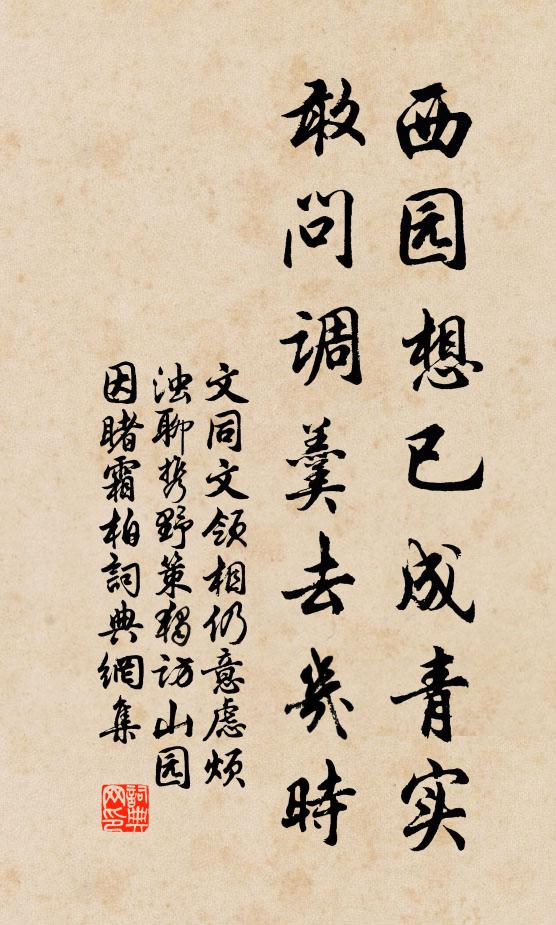 西园想已成青实
敢问调羹去幾時
文同文领相仍意虑烦
浊聊携野策独访山园
因睹霜柏詞典網集
詞典
网印